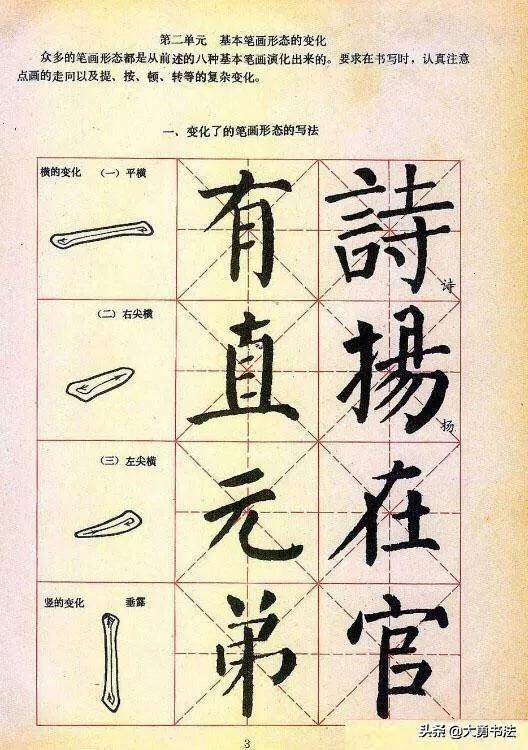 第二单元 基本笔画形态的变化
众多的笔画形态都是从前述的八种基本笔画演化出来的。要求在书写时，认真注意
点画的走向以及提、按、顿、转等的复杂变化。
一、变化了的笔画形态的写法
横的变化 （一）平横
有 詩 诗
（二）右尖横
直 揚 扬
（三）左尖横
元 在
竖的变化 垂露
弟 官
3
头条 @大勇书法